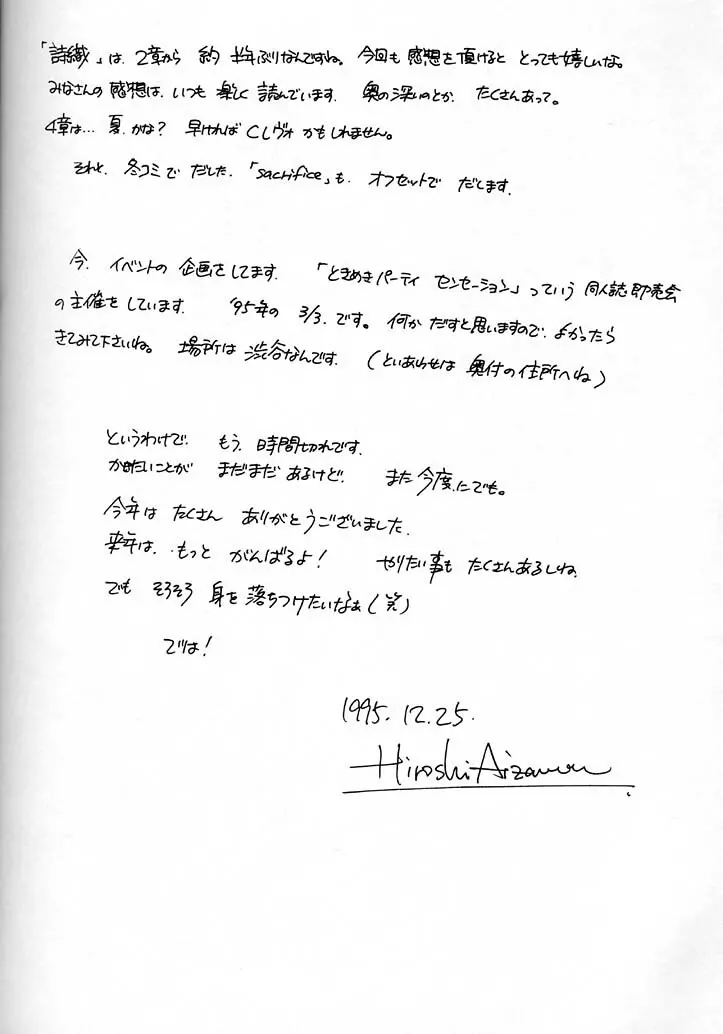 「詩織」は、2章から 約 半年ぶりなんですね。今回も 感想を頂けると とっても嬉しいな。
みなさんの感想は、いつも 楽しく 読んでいます。 奥の深いのとか、たくさんあって。
4章は… 夏、かな? 早ければ Cレヴォ かもしれません。
それと、冬コミで だした、「sacrifice」も、オフセットで だします。
今、イベントの 企画をしてます。 「ときめきパーティ センセーション」っていう 同人誌即売会
の主催をしています。 '95年の 3/3. です。何か だすと思いますので、よかったら
きてみて下さいね。 場所は 渋谷なんです。 (といあわせは 奥付の住所へね)
というわけで、 もう、時間切れです。
かきたいことが まだまだ あるけど、 また今度にでも。
今年は たくさん ありがとうございました。
来年は、もっと がんばるよ! やりたい事も たくさんあるしね。
でも そろそろ 身を 落ちつけたいなぁ(笑)
では!
1995.12.25.
Hiroshi Aizawa